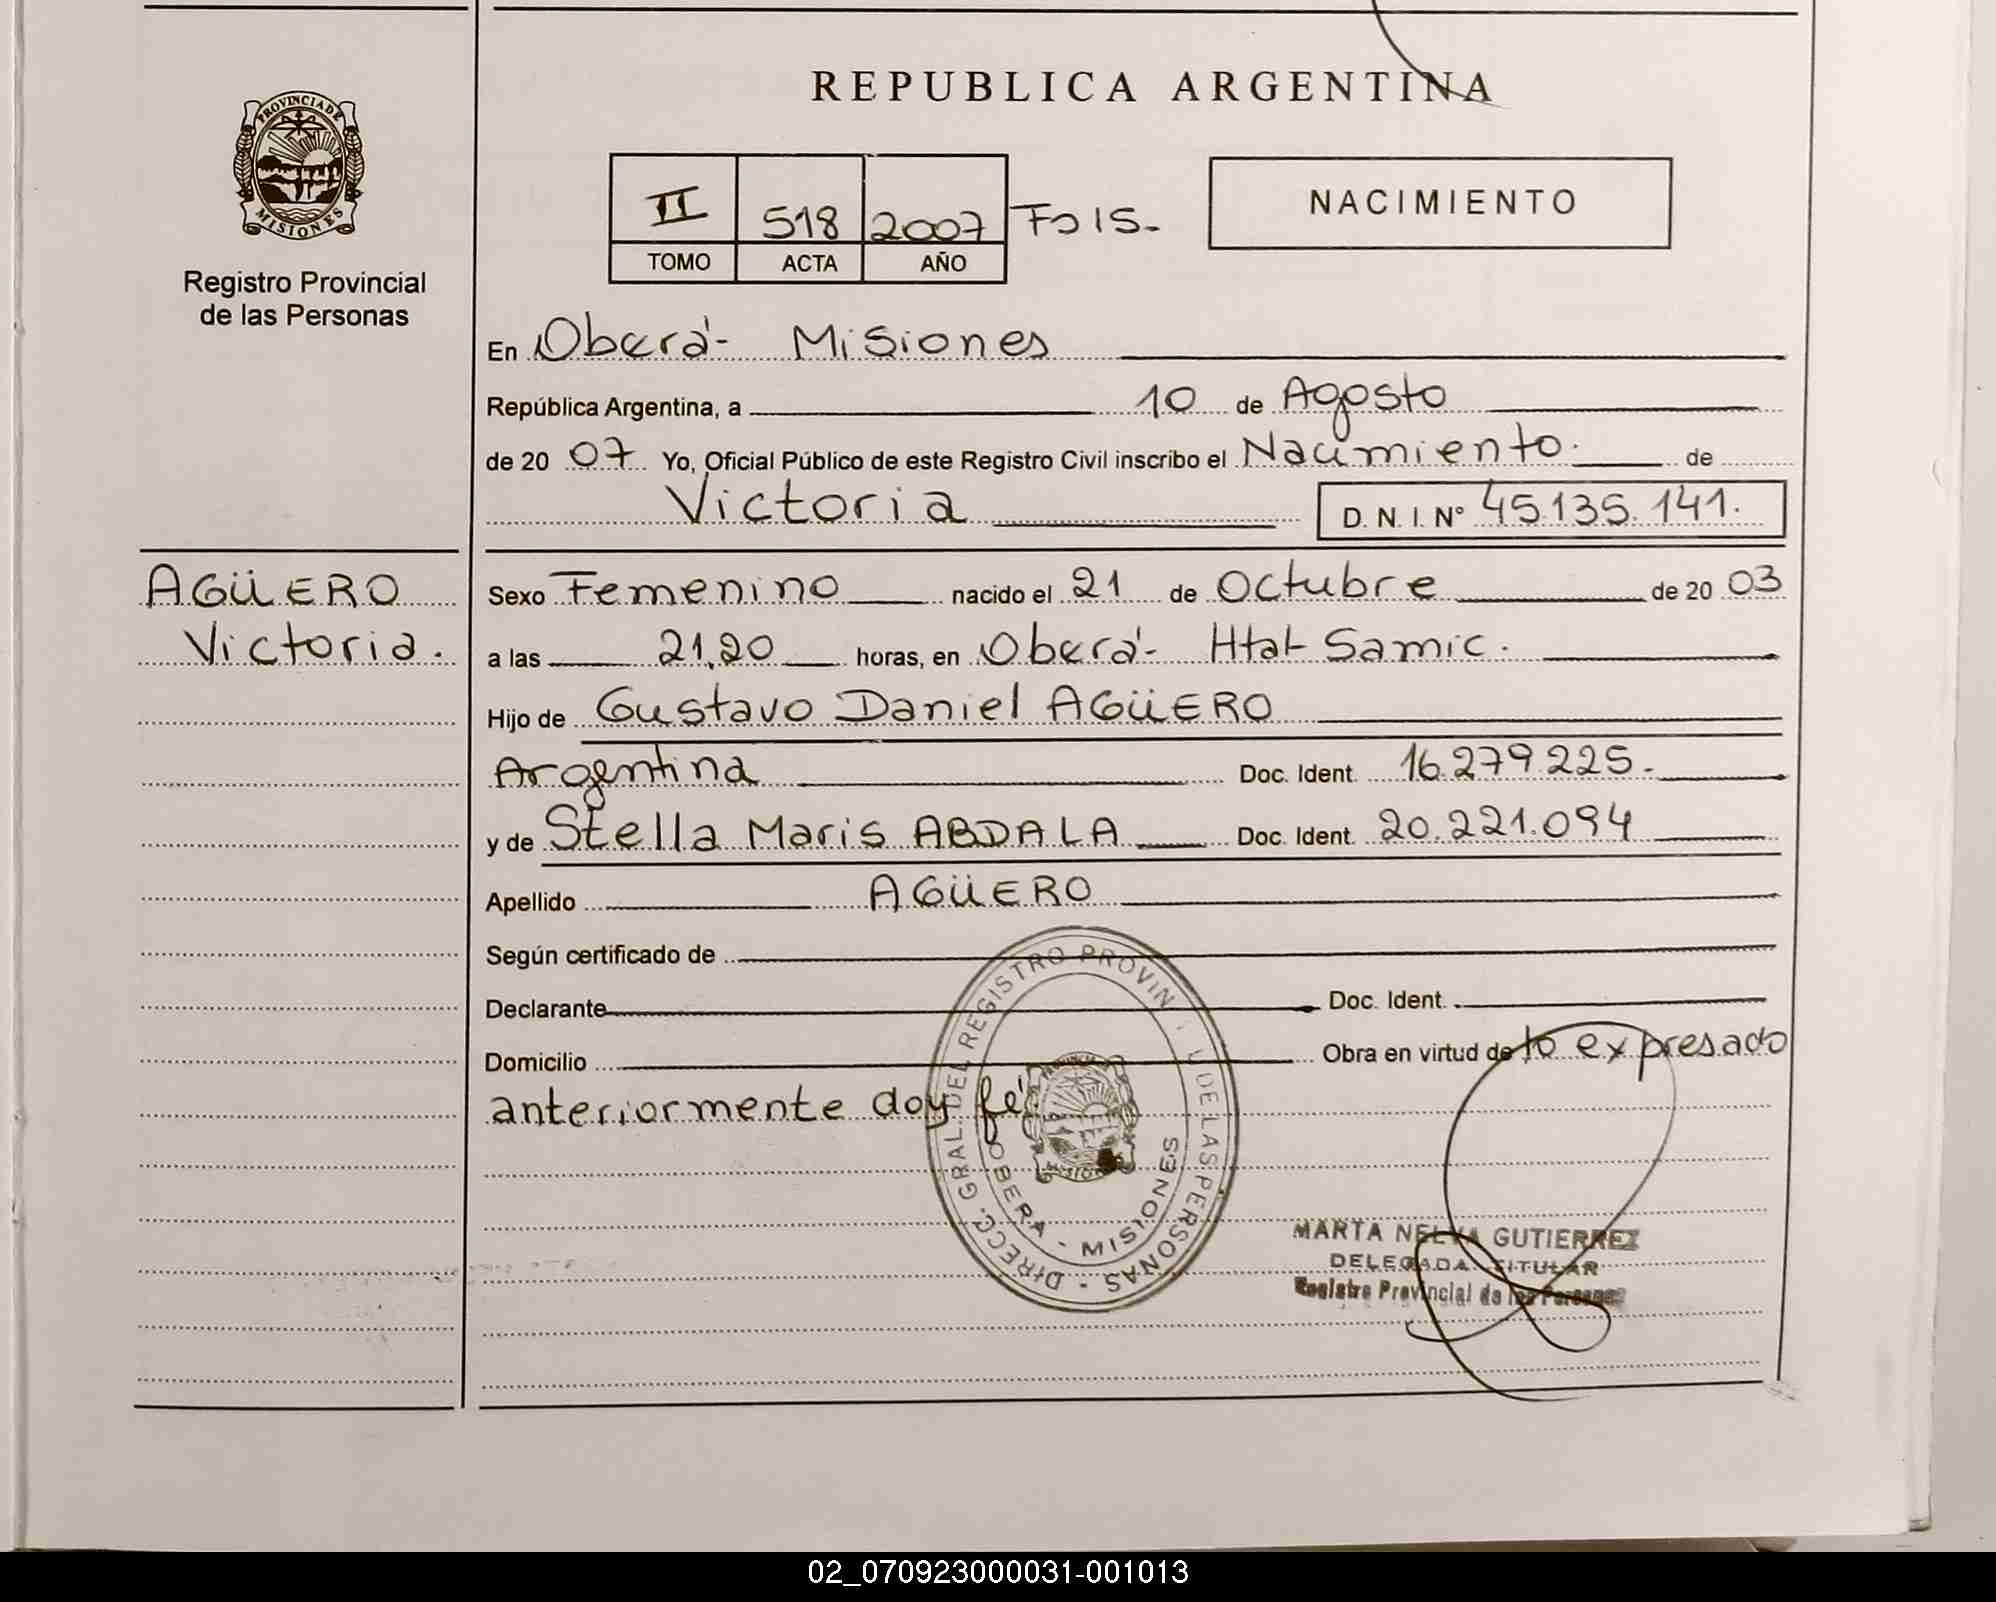 REPUBLICA ARGENTINA
PROVINCIA DE
MISIONES
Registro Provincial
de las Personas
II 518 2007
TOMO ACTA AÑO
NACIMIENTO
En Oberá- Misiones
República Argentina, a 10 de Agosto
de 20 07 Yo, Oficial Público de este Registro Civil inscribo el Nacimiento. de
Victoria D. N. I. Nº 45.135.141.
AGÜERO
Victoria.
Sexo Femenino nacido el 21 de Octubre de 20 03
a las 21,20 horas, en Oberá- Htal Samic.
Hijo de Gustavo Daniel AGÜERO
Argentina Doc. Ident. 16.279.225.
y de Stella Maris ABDALA Doc. Ident. 20.221.094
Apellido AGÜERO
Según certificado de
Declarante Doc. Ident.
Domicilio Obra en virtud de lo expresado
anteriormente doy fé
DIRECC. GRAL. DEL REGISTRO PROVIN DE LAS PERSONAS -
OBERA - MISIONES
MARTA NELVA GUTIERREZ
DELEGADA TITULAR
Registro Provincial de las Personas
02_070923000031-001013